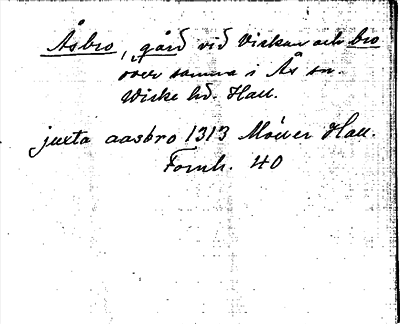 Åsbro, gård vid Viskan och bro
över samma i Ås sn.
Viske hd. Hall.
juxta aasbro 1313 Möller Hall.
Fornh. 40